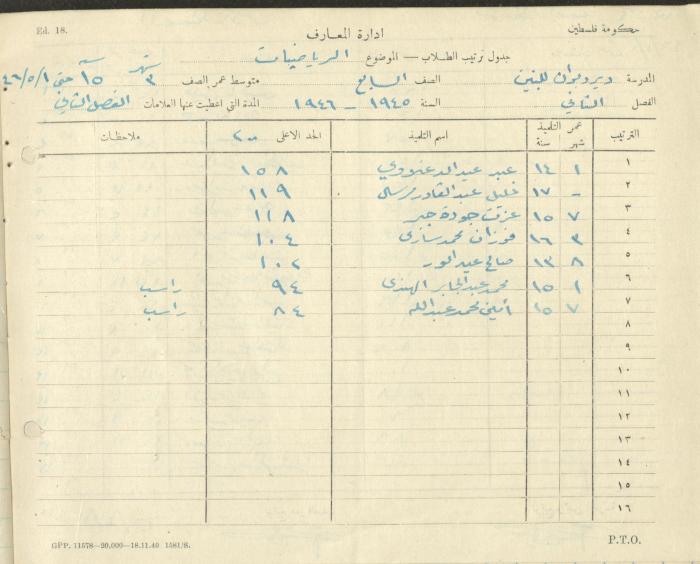 Ed. 18.
حكومة فلسطين
ادارة المعارف
جدول ترتيب الطلاب — الموضوع الرياضيات
المدرسة للبنين الصف السابع متوسط عمر الصف ٣ شهر ١٥ سنة حتى ٤٦/٥/١
الفصل الثاني السنة ١٩٤٥ – ١٩٤٦ المدة التي اعطيت عنها العلامات الفصل الثاني
الترتيب عمر التلميذ شهر سنة اسم التلميذ الحد الاعلى ٢٠٠ ملاحظات
١ ١ ١٤ عبد ١٥٨
٢ – ١٧ خليل عبد القادر مرسال ١١٩
٣ ٧ ١٥ عزت جودة جبر ١١٨
٤ ٣ ١٦ فوزان محمد ١٠٤
٥ ٨ ١٣ صالح ١٠٢
٦ ١ ١٥ محمد عبد الجابر الهندي ٩٤ راسب
٧ ٧ ١٥ أمين محمد عبدالله ٨٤ راسب
٨
٩
١٠
١١
١٢
١٣
١٤
١٥
١٦
GPP. 11578—20,000—18.11.40 1581/S.
P.T.O.